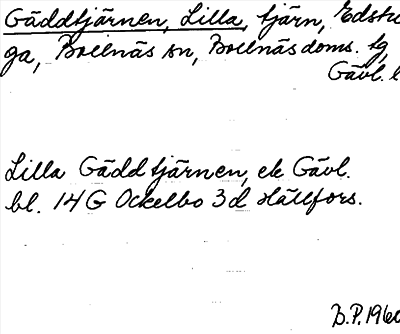 Gäddtjärnen, Lilla, tjärn, Edstu
ga, Bollnäs sn, Bollnäs doms. tg,
Gävl. l
Lilla Gäddtjärnen, ek Gävl.
bl. 14 G Ockelbo 3d Hällfors.
B.P. 1960